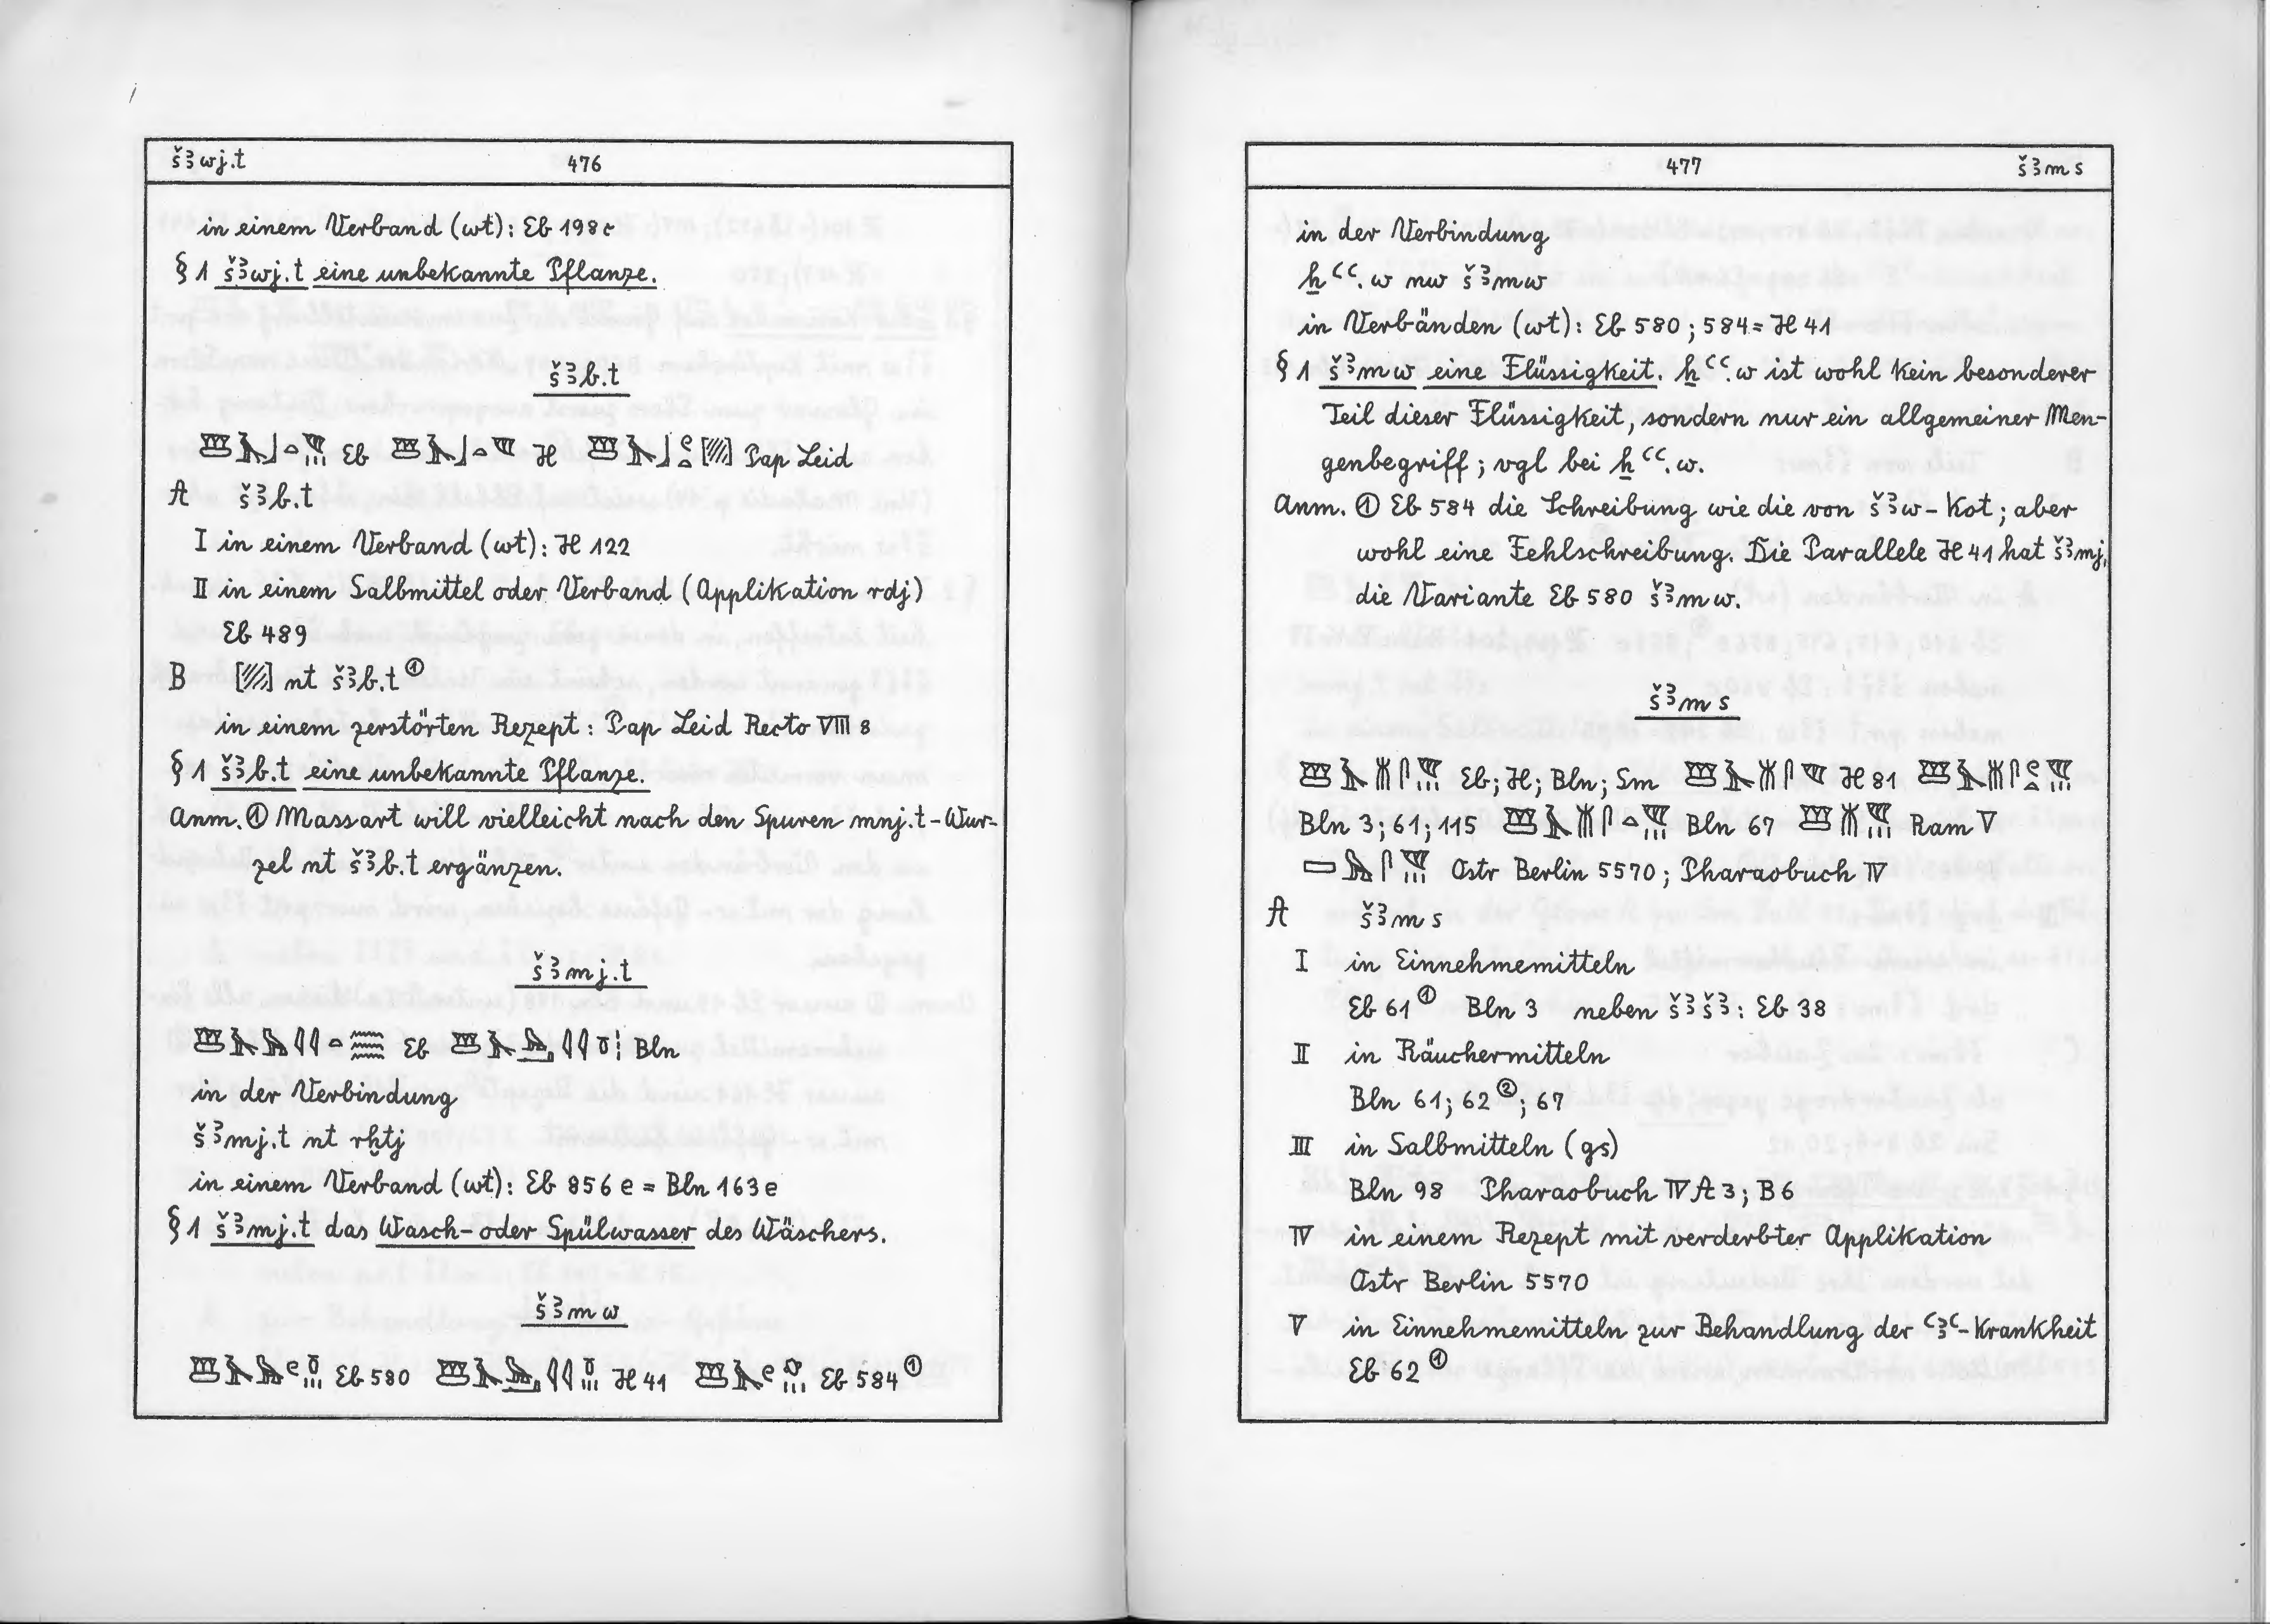 šꜣwj.t 476
in einem Verband (wt): Eb 198c
§ 1 šꜣwj.t eine unbekannte Pflanze.
šꜣb.t
Eb H Pap Leid
A šꜣb.t
I in einem Verband (wt): H 122
II in einem Salbmittel oder Verband (Applikation rdj)
Eb 489
B [///] nt šꜣb.t ①
in einem zerstörten Rezept: Pap Leid Recto VIII 8
§ 1 šꜣb.t eine unbekannte Pflanze.
Anm. ① Massart will vielleicht nach den Spuren mnj.t-Wur-
zel nt šꜣb.t ergänzen.
šꜣmj.t
Eb Bln
in der Verbindung
šꜣmj.t nt rḫtj
in einem Verband (wt): Eb 856e = Bln 163e
§ 1 šꜣmj.t das Wasch- oder Spülwasser des Wäschers.
šꜣmw
Eb 580 H 41 Eb 584 ①
477 šꜣms
in der Verbindung
ẖꜥꜥ.w nw šꜣmw
in Verbänden (wt): Eb 580; 584 = H 41
§ 1 šꜣmw eine Flüssigkeit. ẖꜥꜥ.w ist wohl kein besonderer
Teil dieser Flüssigkeit, sondern nur ein allgemeiner Men-
genbegriff; vgl bei ẖꜥꜥ.w.
Anm. ① Eb 584 die Schreibung wie die von šꜣw-Kot; aber
wohl eine Fehlschreibung. Die Parallele H 41 hat šꜣmj,
die Variante Eb 580 šꜣmw.
šꜣms
Eb; H; Bln; Sm H 81
Bln 3; 61; 115 Bln 67 Ram V
Ostr Berlin 5570; Pharaobuch IV
A šꜣms
I in Einnehmemitteln
Eb 61 ① Bln 3 neben šꜣšꜣ: Eb 38
II in Räuchermitteln
Bln 61; 62 ②; 67
III in Salbmitteln (gs)
Bln 98 Pharaobuch IV A 3; B 6
IV in einem Rezept mit verderbter Applikation
Ostr Berlin 5570
V in Einnehmemitteln zur Behandlung der ꜥꜣꜥ-Krankheit
Eb 62 ①